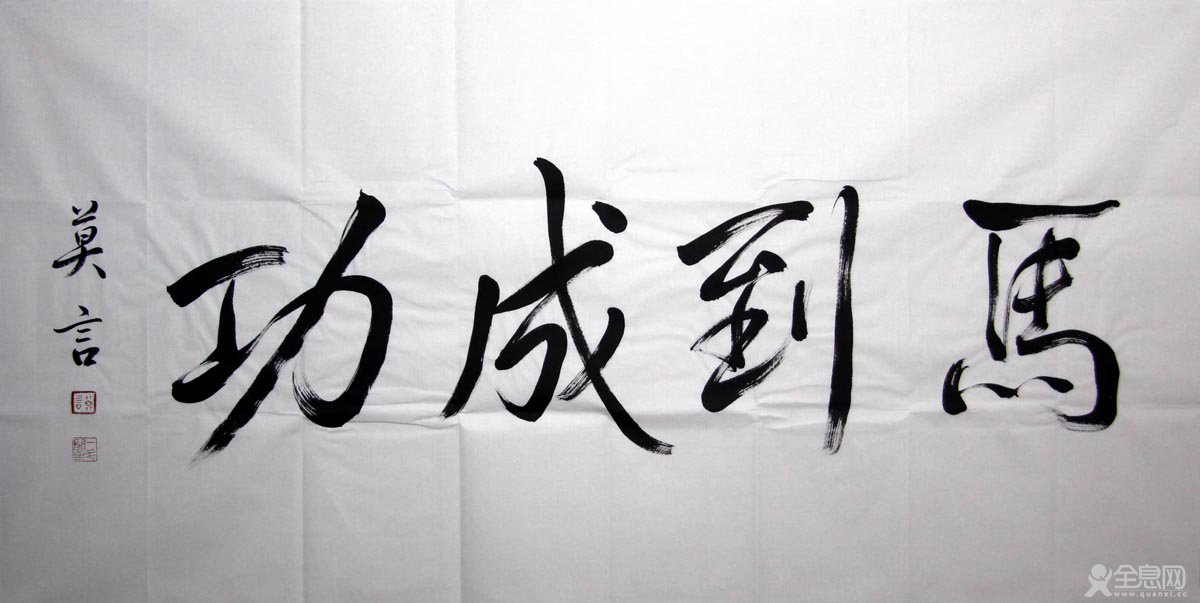 馬到成功
莫言
全息网
www.quanxi.cc